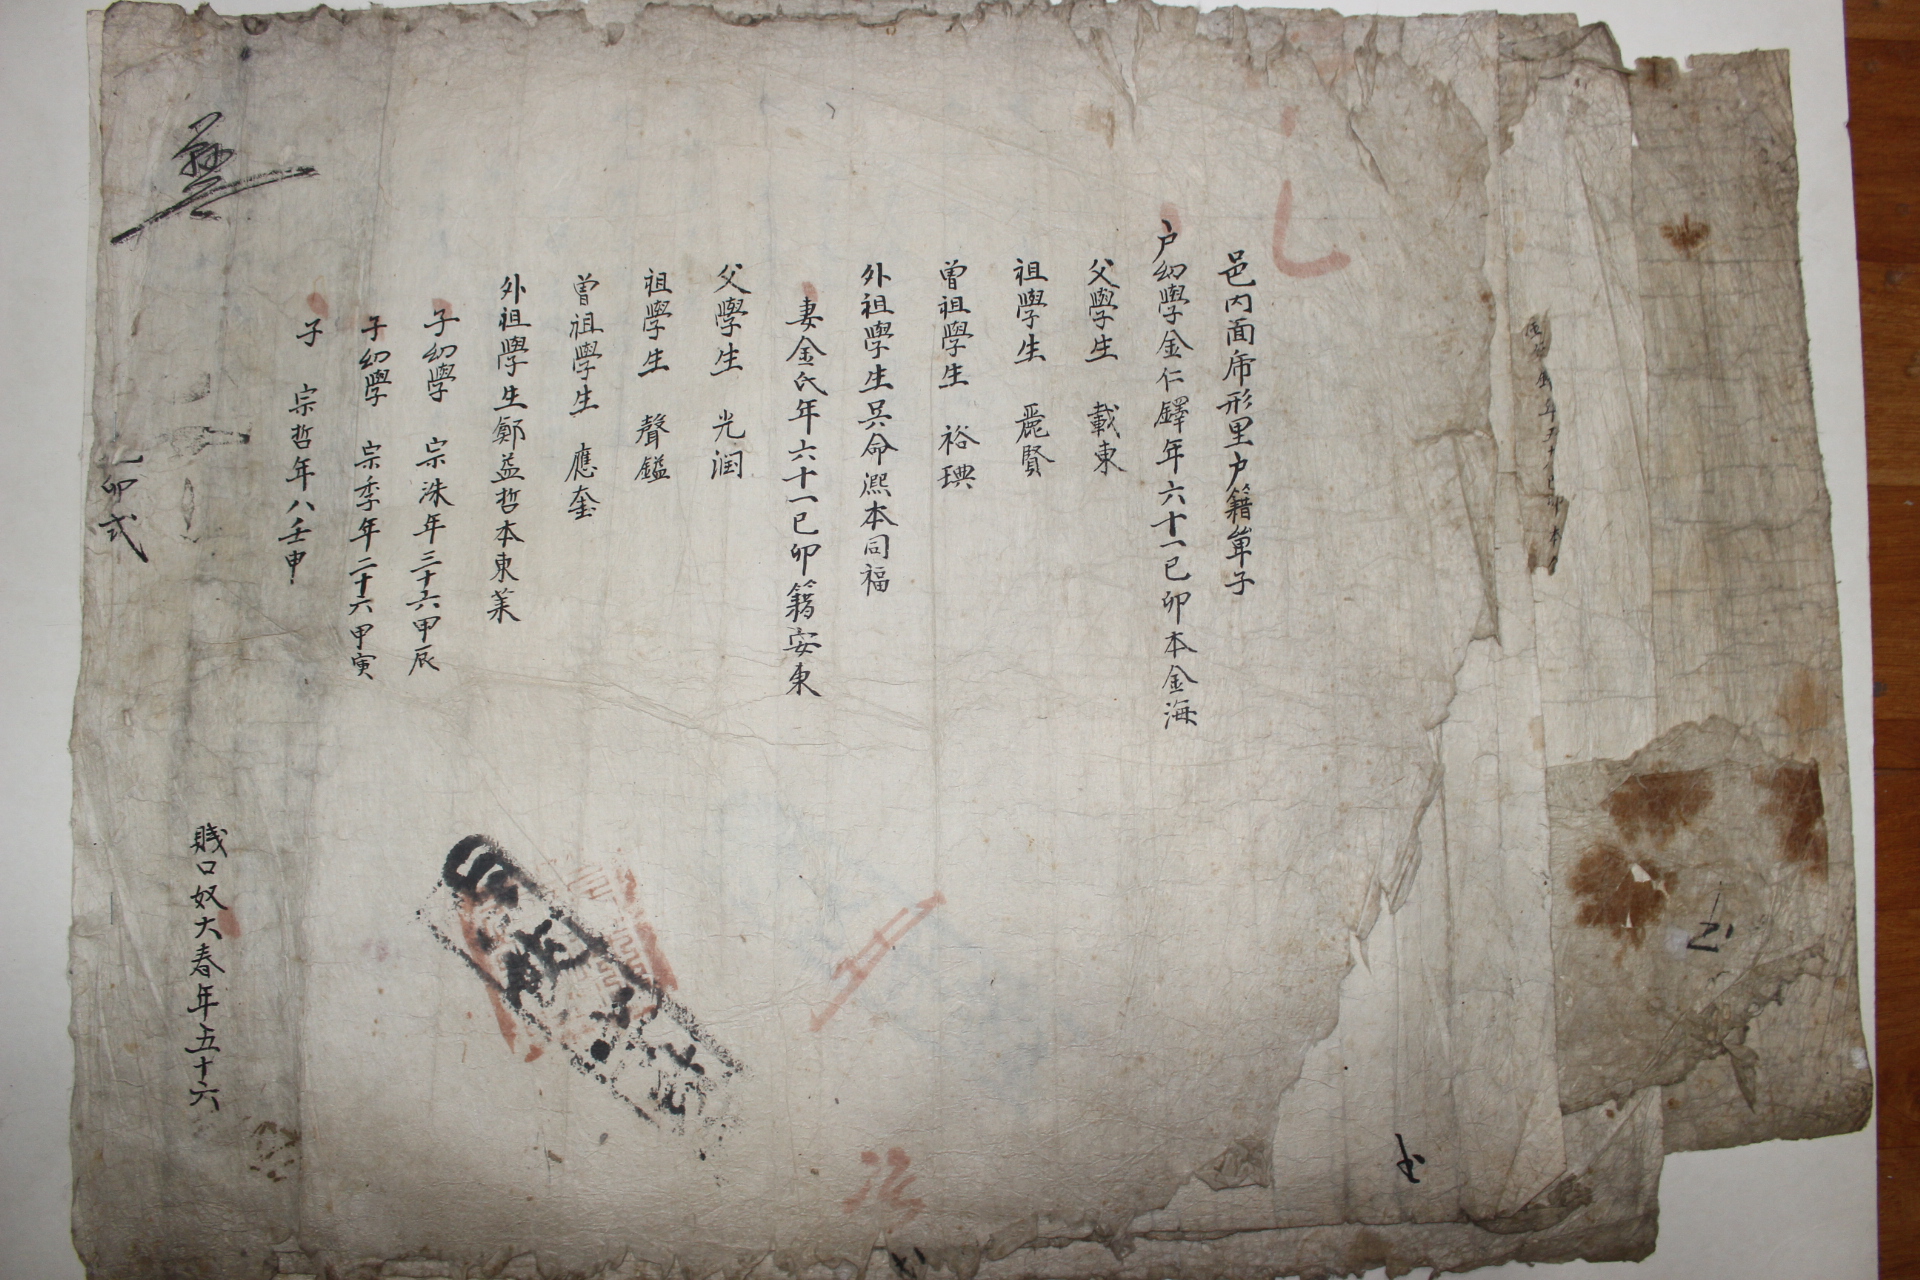 邑內面帝形里户籍單子
户幼學金仁鐸年六十一己卯本金海
父學生 載東
祖學生 麗賢
曾祖學生 裕琠
外祖學生吳命熙本同福
妻金氏年六十一己卯籍安東
父學生 光潤
祖學生 聲鎰
曾祖學生 應奎
外祖學生鄭益哲本東萊
子幼學 宗洙年三十六甲辰
子幼學 宗季年二十六甲寅
子 宗哲年八壬申
賤口奴大春年五十六
卯式